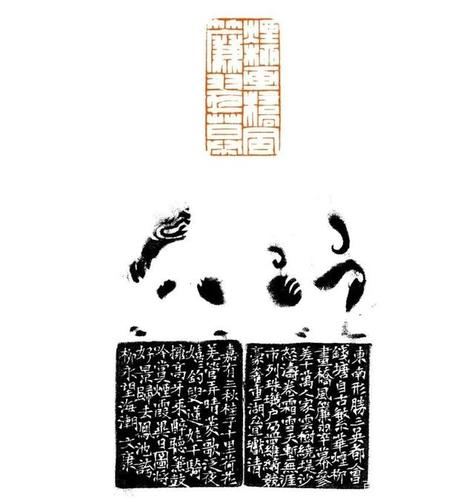 煙柳畫橋風
簾翠幕
東南形勝三吳都會
錢塘自古繁華煙柳
畫橋風簾翠幕參
差十萬人家雲樹繞堤沙
怒濤卷霜雪天塹無涯
市列珠璣戶盈羅綺競
豪奢重湖疊巘清
嘉有三秋桂子十里荷花
羌管弄晴菱歌泛夜
嬉釣叟蓮娃千騎
擁高牙乘醉聽簫鼓
吟賞煙霞異日圖將
好景歸去鳳池誇
柳永望海潮